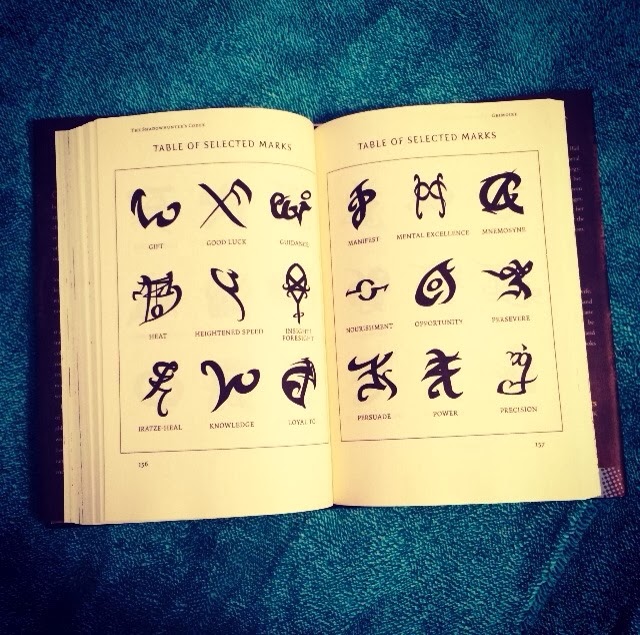 THE SHADOWHUNTER'S CODEX
TABLE OF SELECTED MARKS
GIFT
GOOD LUCK
GUIDANCE
HEAT
HEIGHTENED SPEED
INSIGHT/
FORESIGHT
IRATZE-HEAL
KNOWLEDGE
LOYAL TO
156
GRIMOIRE
TABLE OF SELECTED MARKS
MANIFEST
MENTAL EXCELLENCE
MNEMOSYNE
NOURISHMENT
OPPORTUNITY
PERSEVERE
PERSUADE
POWER
PRECISION
157